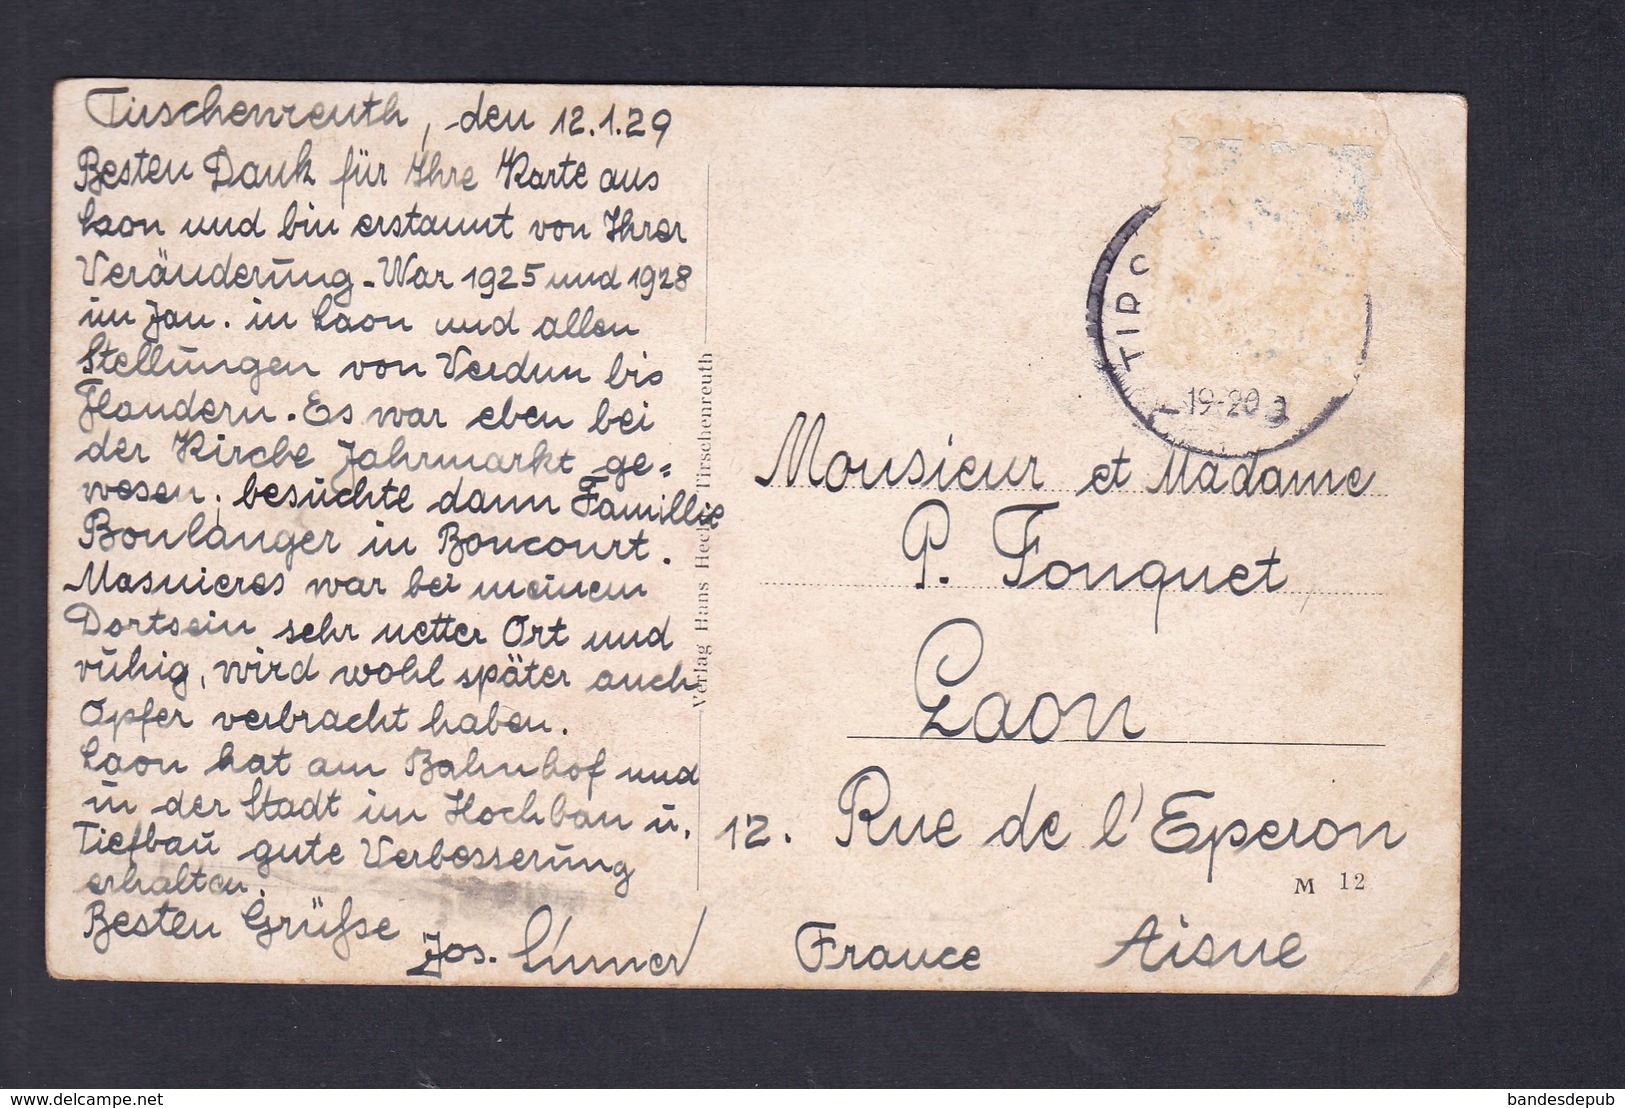 Tirschenreuth, den 12.1.29
Besten Dank für Ihre Karte aus
Laon und bin erstaunt von Ihrer
Veränderung - War 1925 und 1928
im Jan. in Laon und allen
Stellungen von Verdun bis
Flandern. Es war eben bei
der Kirche Jahrmarkt ge=
wesen, besuchte dann Famillie
Boulanger in Boncourt.
Masnieres war bei meinem
Dortsein sehr netter Ort und
ruhig, wird wohl später auch
Opfer verbracht haben.
Laon hat am Bahnhof und
in der Stadt im Hochbau u.
Tiefbau gute Verbesserung
erhalten.
Besten Grüße
Jos.
Verlag Hans Hecht, Tirschenreuth
TIRSC
19-20
Monsieur et Madame
P. Fouquet
Laon
12. Rue de l'Eperon
M 12
France Aisne
www.delcampe.net
bandesdepub